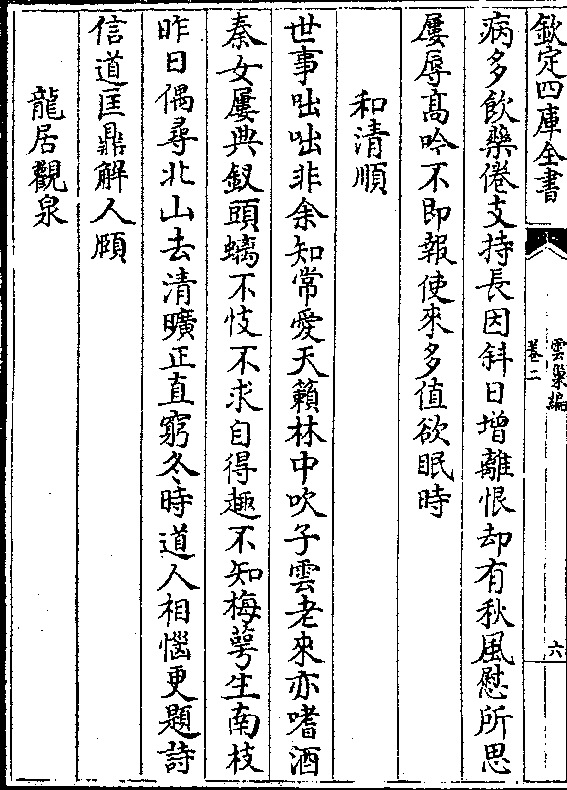 欽定四庫全書
雲巢編
卷二
六
病多飲藥倦支持長因斜日增離恨却有秋風慰所思
屢辱高吟不即報使來多值欲眠時
和清順
世事咄咄非余知常愛天籟林中吹子雲老來亦嗜酒
秦女屢典釵頭螭不忮不求自得趣不知梅蕚生南枝
昨日偶尋北山去清曠正直窮冬時道人相惱更題詩
信道匡鼎解人頤
龍居觀泉